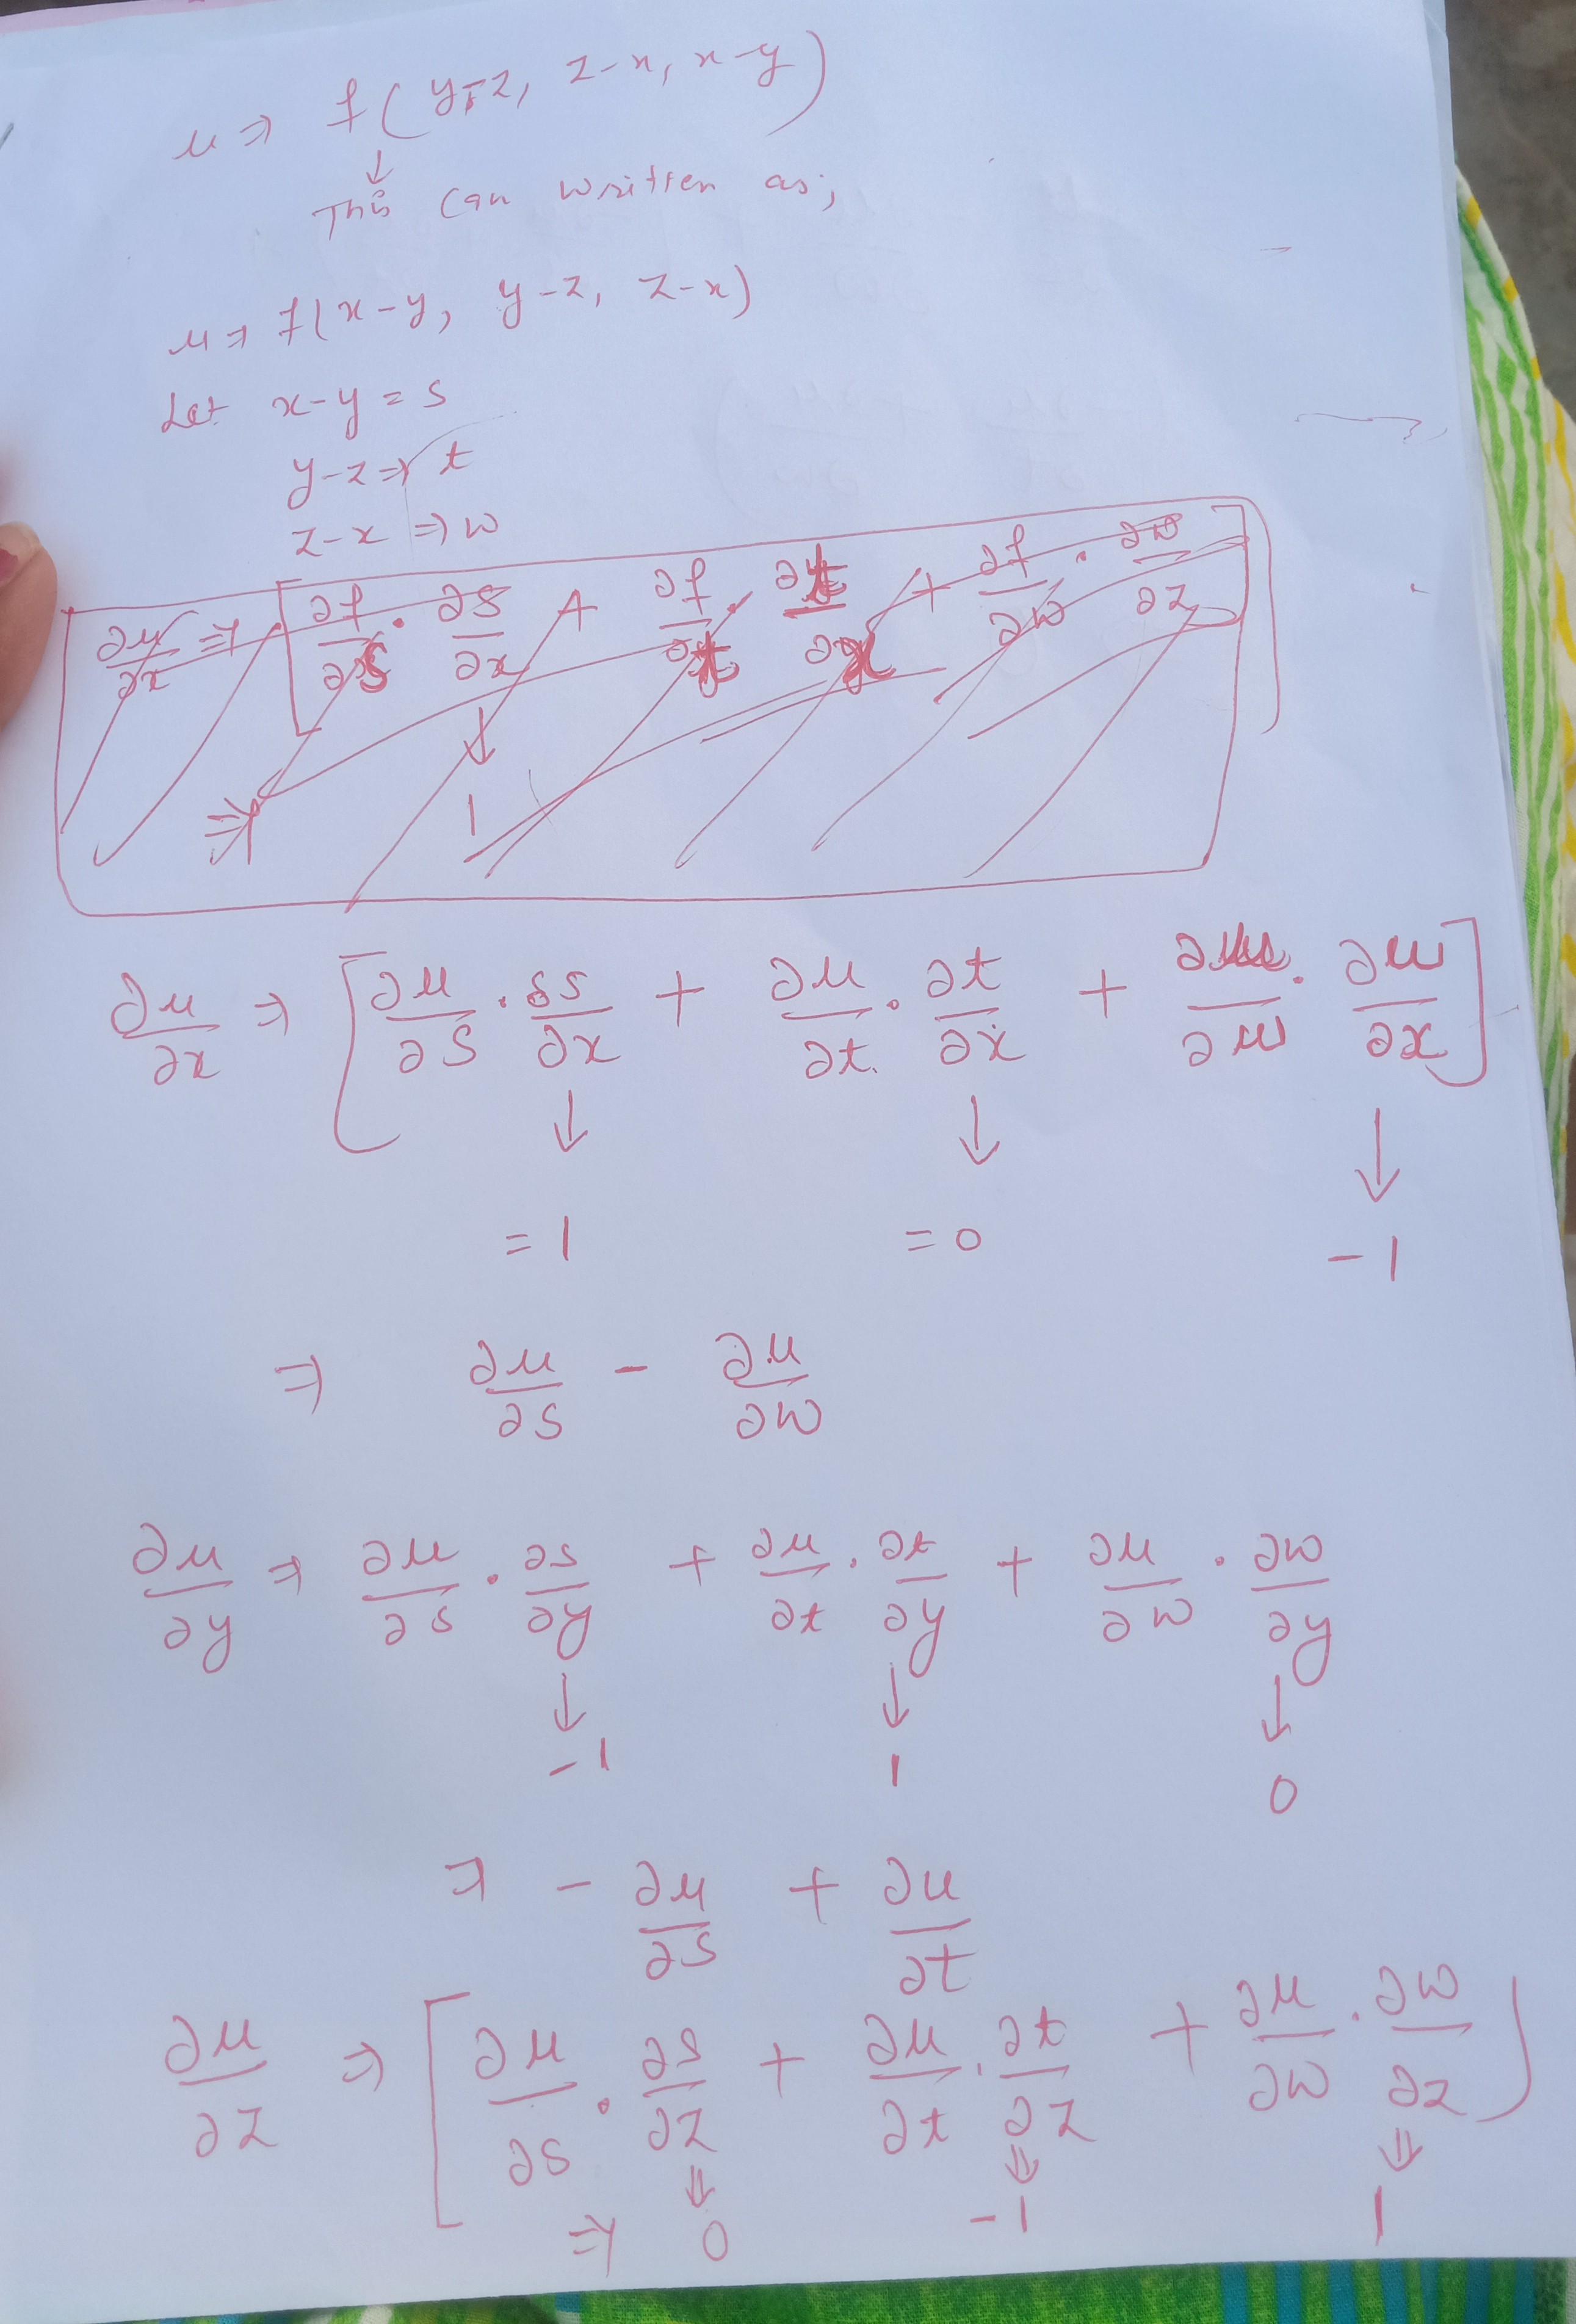 u ⇒ f(y-z, z-x, x-y)
↓
This can written as;
u ⇒ f(x-y, y-z, z-x)
Let x-y = s
y-z ⇒ t
z-x ⇒ w
∂u/∂x ⇒ [∂f/∂s · ∂s/∂x + ∂f/∂t · ∂t/∂x + ∂f/∂w · ∂w/∂z]
↓
⇒ 1
∂u/∂x ⇒ [∂u/∂s · δs/∂x + ∂u/∂t · ∂t/∂x + ∂u/∂w · ∂w/∂x]
↓ ↓ ↓
= 1 = 0 -1
⇒ ∂u/∂s - ∂u/∂w
∂u/∂y ⇒ ∂u/∂s · ∂s/∂y + ∂u/∂t · ∂t/∂y + ∂u/∂w · ∂w/∂y
↓ ↓ ↓
-1 1 0
⇒ - ∂u/∂s + ∂u/∂t
∂u/∂z ⇒ [∂u/∂s · ∂s/∂z + ∂u/∂t · ∂t/∂z + ∂u/∂w · ∂w/∂z)
⇓ ⇓ ⇓
⇒ 0 -1 1